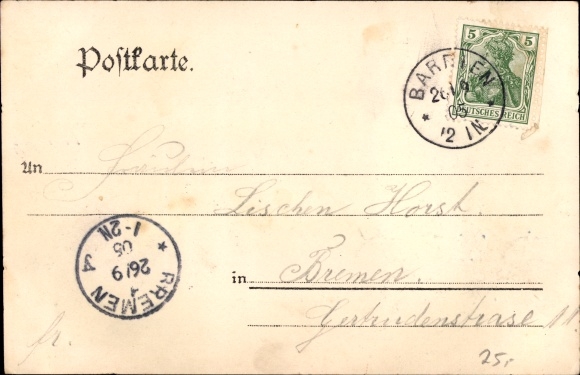 Postkarte.
5 5
DEUTSCHES REICH
BARRIEN
05
12 1N
An Fräulein
Lischen Horst.
in Bremen.
Gertrudenstrasse
BREMEN
4
26/9
05
1-2N
fr.
25,-